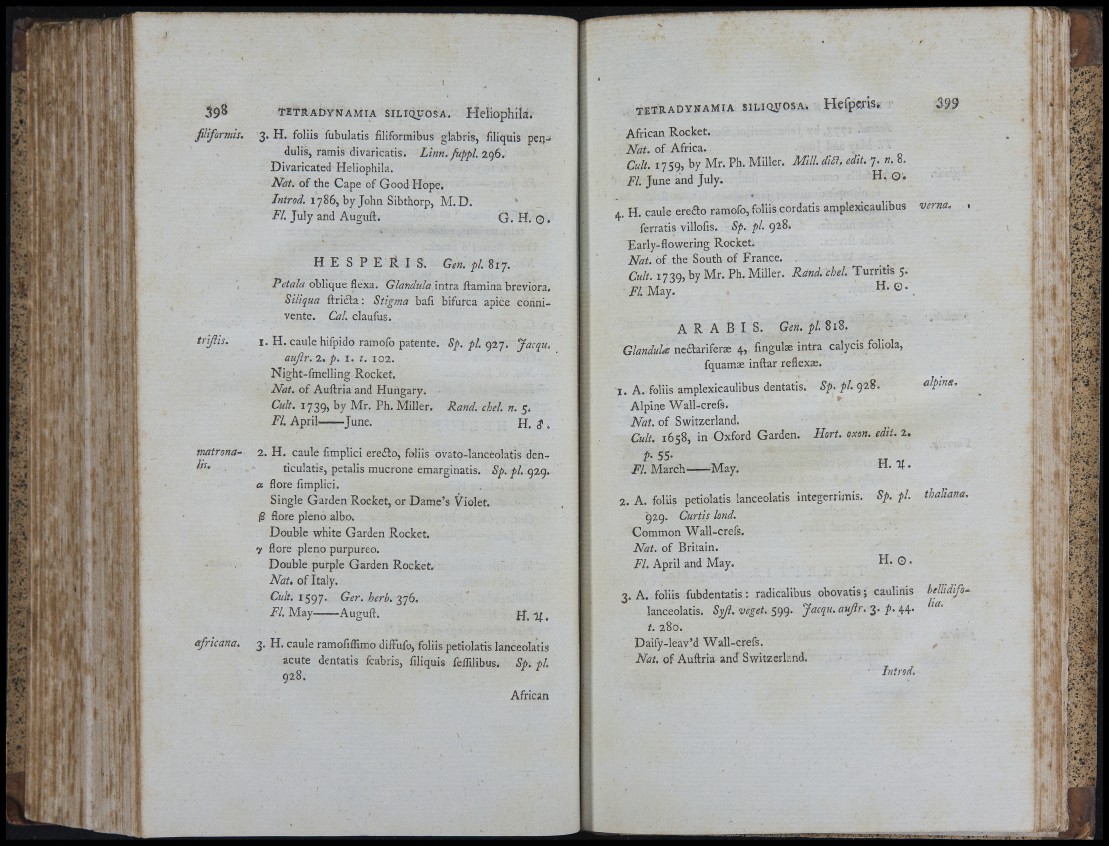 398 TETRADYNAMIA SILIQUOSA. Heliophila.
filiformis. 3. H. foliis ſubulatis filiformibus glabris, ſiliquis pen-
dulis, ramis divaricatis. Linn. ſuppl. 296.
Divaricated Heliophila.
Nat. of the Cape of Good Hope.
Introd. 1786, by John Sibthorp, M.D.
Fl. July and Auguſt. G. H. ☉.
HESPERIS. Gen. pl. 817.
Petala oblique flexa. Glandula intra ſtamina breviora.
Siliqua ſtricta: Stigma baſi bifurca apice conni-
vente. Cal. clauſus.
triſtis. 1. H. caule hiſpido ramoſo patente. Sp. pl. 927. Jacqu.
auſtr. 2. p. 1. t. 102.
Night-ſmelling Rocket.
Nat. of Auſtria and Hungary.
Cult. 1739, by Mr. Ph. Miller. Rand. chel. n. 5.
Fl. April——June. H. ♂.
matrona- 2. H. caule ſimplici erecto, foliis ovato-lanceolatis den-
lis. ticulatis, petalis mucrone emarginatis. Sp. pl. 929.
α flore ſimplici.
Single Garden Rocket, or Dame's Violet.
β flore pleno albo.
Double white Garden Rocket.
γ flore pleno purpureo.
Double purple Garden Rocket.
Nat. of Italy.
Cult. 1597. Ger. herb. 376.
Fl. May——Auguſt. H. ♃.
africana. 3. H. caule ramoſiſſimo diffuſo, foliis petiolatis lanceolatis
acute dentatis ſcabris, ſiliquis ſeſſilibus. Sp. pl.
928.
African
TETRADYNAMIA SILIQUOSA. Heſperis. 399
African Rocket.
Nat. of Africa.
Cult. 1759, by Mr. Ph. Miller. Mill. dict. edit. 7. n. 8.
Fl. June and July. H. ☉.
4. H. caule erecto ramoſo, foliis cordatis amplexicaulibus verna.
ſerratis villoſis. Sp. pl. 928.
Early-flowering Rocket.
Nat. of the South of France.
Cult. 1739, by Mr. Ph. Miller. Rand. chel. Turritis 5.
Fl. May. H. ☉.
ARABIS. Gen. pl. 818.
Glandulæ nectariferæ 4, ſingulæ intra calycis foliola,
ſquamæ inſtar reflexæ.
1. A. foliis amplexicaulibus dentatis. Sp. pl. 928. alpina.
Alpine Wall-creſs.
Nat. of Switzerland.
Cult. 1658, in Oxford Garden. Hort. oxon. edit. 2.
p. 55.
Fl. March——May. H. ♃.
2. A. foliis petiolatis lanceolatis integerrimis. Sp. pl. thaliana.
929. Curtis lond.
Common Wall-creſs.
Nat. of Britain.
Fl. April and May. H. ☉.
3. A. foliis ſubdentatis: radicalibus obovatis; caulinis bellidifo-
lanceolatis. Syſt. veget. 599. Jacqu. auſtr. 3. p. 44. lia.
t. 280.
Daiſy-leav'd Wall-creſs.
Nat. of Auſtria and Switzerland.
Introd.